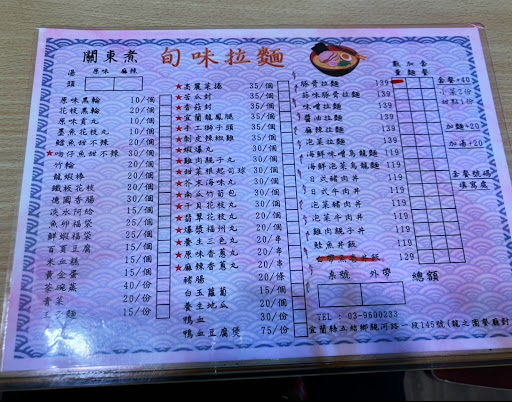 關東煮 旬味拉麵
湯頭 原味 麻辣
原味黑輪 10/個
花枝黑輪 20/個
原味貢丸 10/個
墨魚花枝丸 10/個
鱈魚甜不辣 30/個
★吻仔魚甜不辣 30/個
竹輪 20/個
龍蝦棒 20/個
鐵板花枝 20/個
德國香腸 30/個
淡水阿給 50/個
魚卵福袋 25/個
鮮蝦福袋 25/個
百頁豆腐 25/個
米血糕 15/個
黃金蛋 15/個
茶碗蒸 40/份
青菜 20/份
王子麵 15/份
★高麗菜捲 35/個
★苦瓜封 35/個
★香菇封 35/個
★宜蘭龍鳳腿 35/個
★手工獅子頭 35/個
★剝皮辣椒雞 35/個
★蝦爆丸 30/個
★雞肉親子丸 30/個
★甜菜根起司球 30/個
★芥末海味丸 30/個
★南瓜竹筍包 30/個
★干貝花枝丸 30/個
★翡翠花枝丸 20/個
★爆漿福州丸 20/個
★養生三色丸 20/串
★原味香蔥丸 20/串
★麻辣香蔥丸 20/串
豬腸 20/條
白玉蘿蔔 15/份
養生地瓜 20/份
鴨血 30/份
鴨血豆腐煲 75/份
數量 加麵 套餐
豚骨拉麵 139
蒜味豚骨拉麵 139
味噌拉麵 139
醬油拉麵 139
麻辣拉麵 139
泡菜拉麵 139
海鮮味噌烏龍麵 139
海鮮泡菜烏龍麵 139
日式豬肉丼 119
日式牛肉丼 119
泡菜豬肉丼 119
泡菜牛肉丼 119
雞肉親子丼 119
鮭魚丼飯 119
套餐+40
小菜1份
甜點1份
加麵+20
加湯+20
套餐號碼
填寫處
桌號 外帶 總額
TEL : 03-9500233
宜蘭縣五結鄉親河路一段145號(龍之園餐廳對